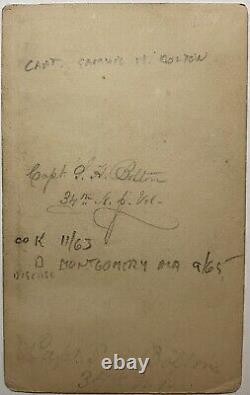 CAPT. SAMUEL H. BOLTON
Capt S. H. Bolton
34th N. J. Vol.
CO K 11/63
D MONTGOMERY ALA 9/65
DISEASE
Bolton
3